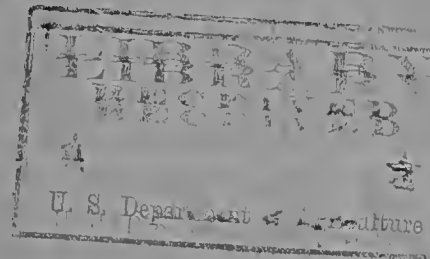 LIBRARY
RECEIVED
U. S. Department of Agriculture